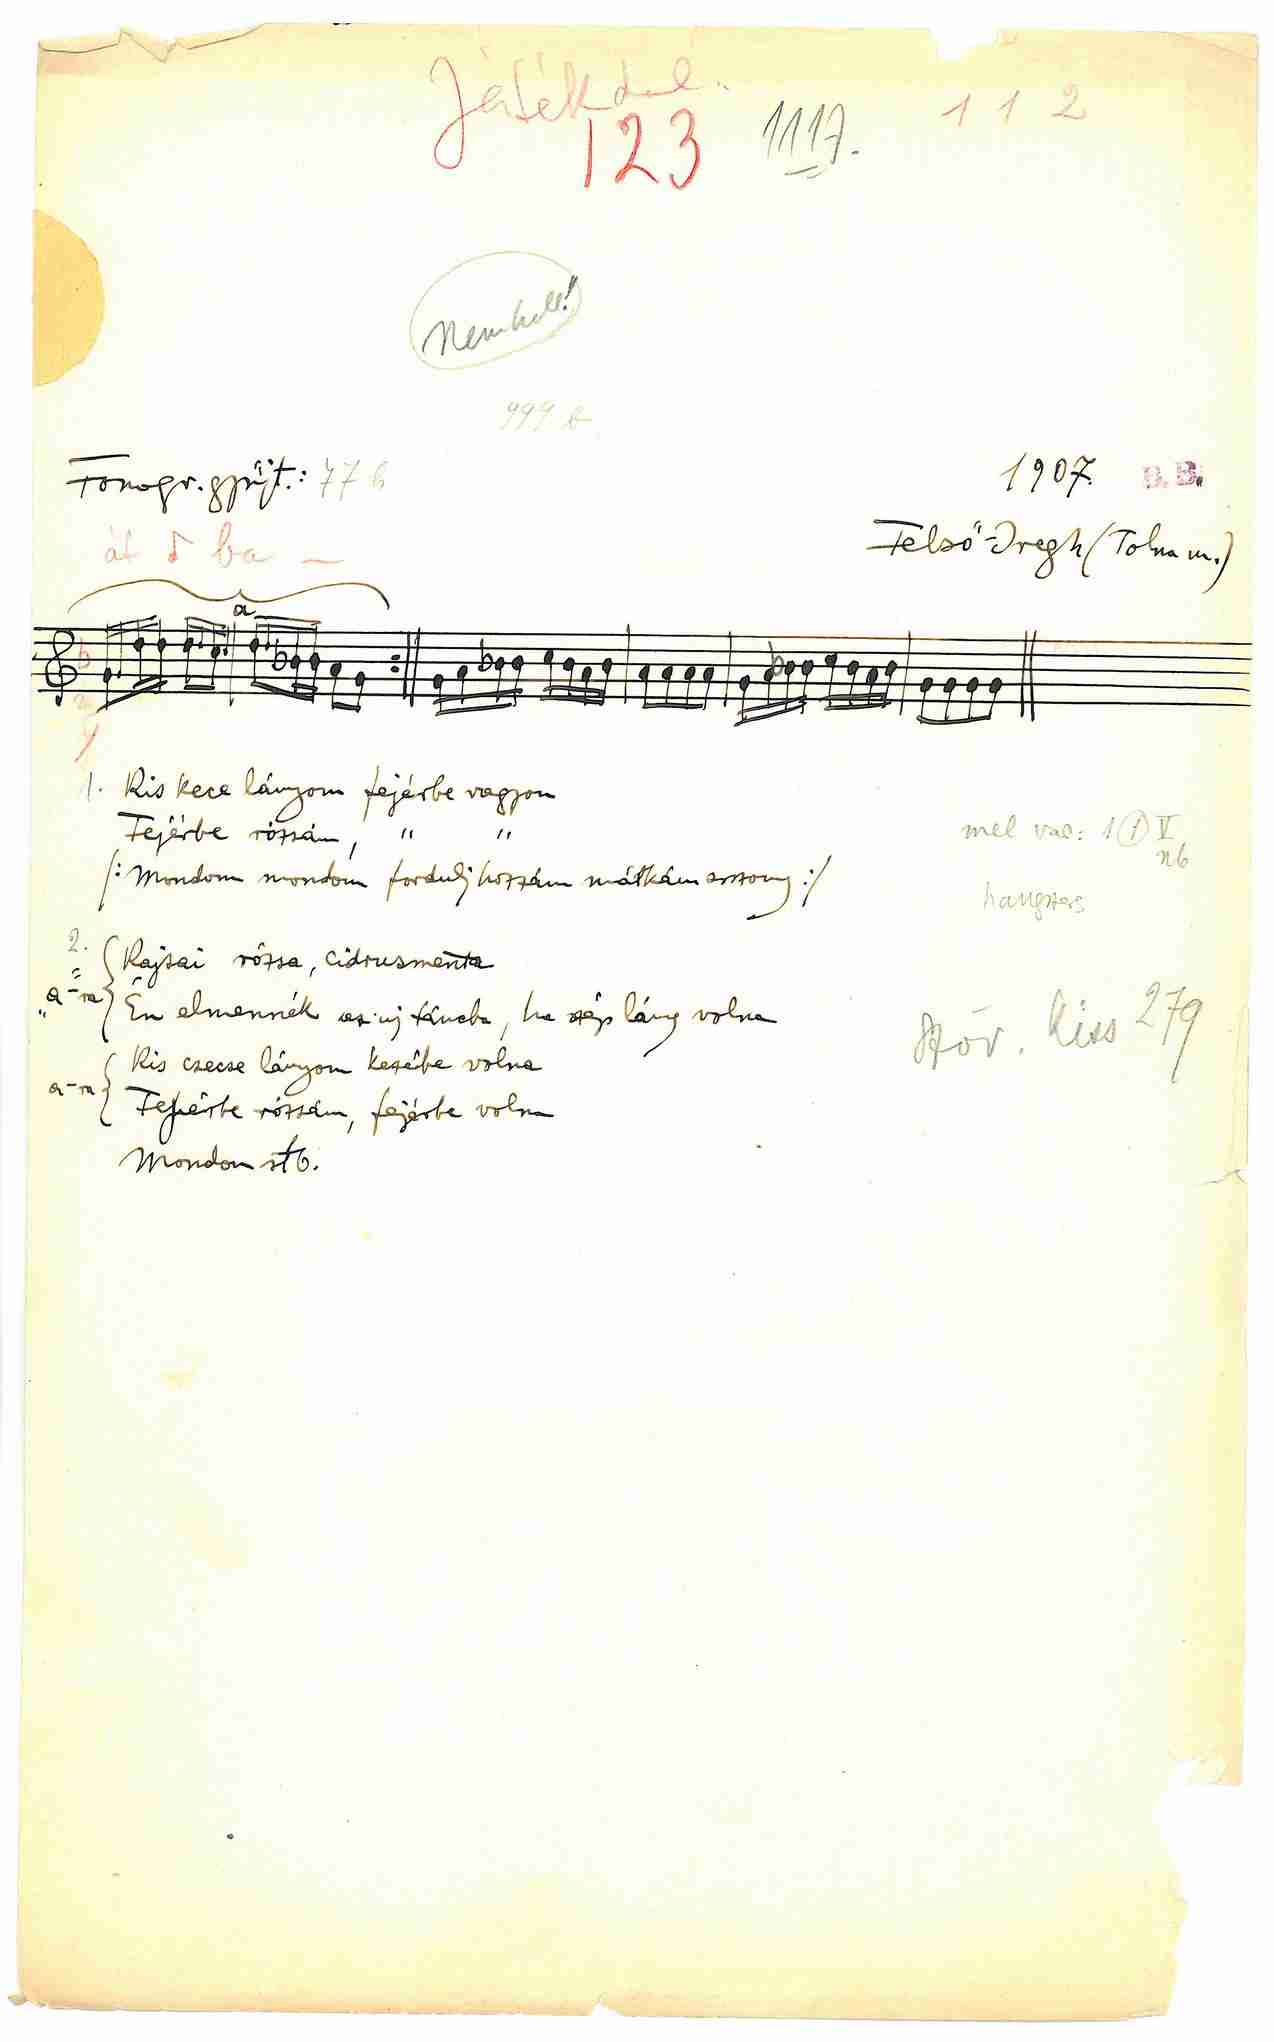 Játékdal.
123 1117. 112
Nem kell!
999 b
Fonogr. gyűjt.: 77 b
1907. B.B.
Felső-Iregh (Tolna m.)
át ♪ ba
a
1. Kis kece lányom fejérbe vagyon
Fejérbe rózsám, " "
/: Mondom mondom fordulj hozzám mátkám asszony :/
mel var: 1 (1) V
nb
hangszers
2. Rajsai rózsa, cidrusmenta
"a"-ra Én elmennék az uj táncba, ha szép lány volna
Kis czecse lányom kezébe volna
a-ra Fejérbe rózsám, fejérbe volna
Mondom stb.
Kiss 279